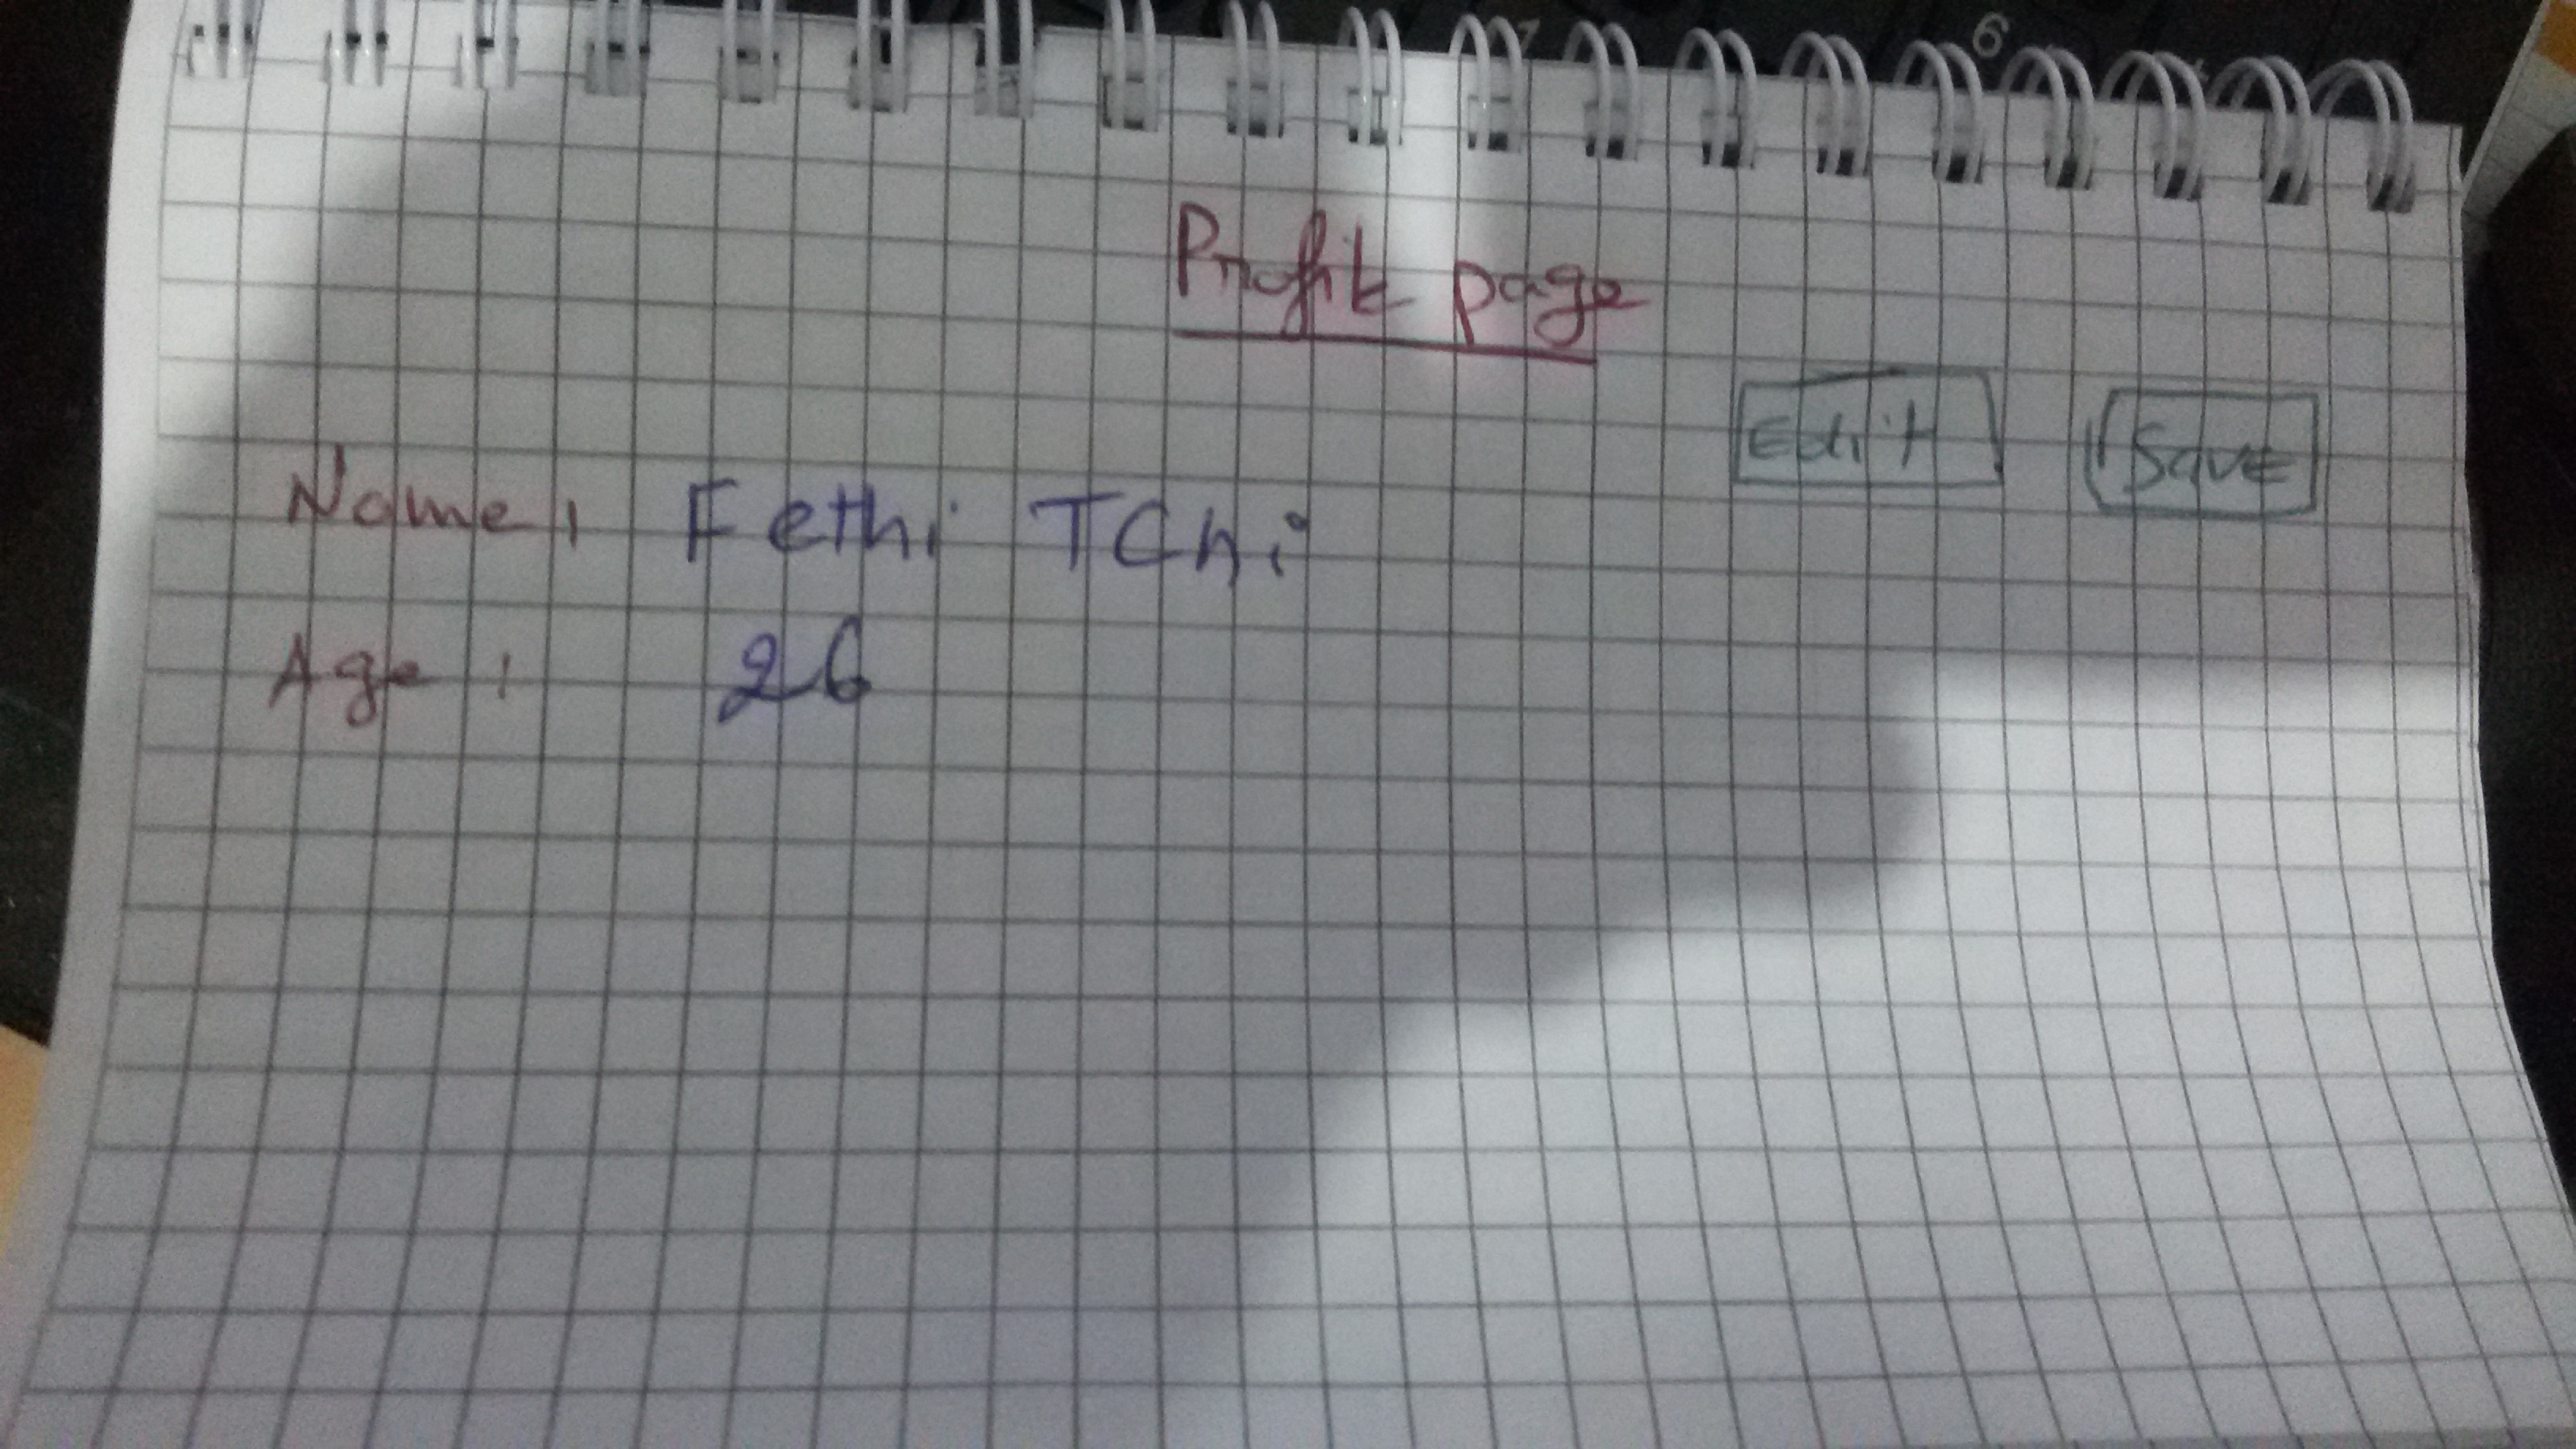 Profile page
Edit Save
Name: Fethi TChi
Age: 26
6